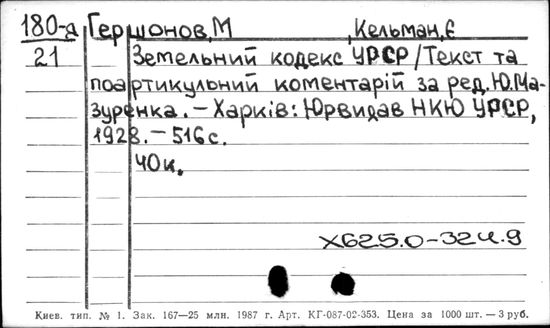 180-а Гершонов, М , Кельман, Є
21 Земельний кодекс УРСР/Текст та
поартикульний коментарій за ред. Ю. Ма-
зуренка. – Харків: Юрвидав НКЮ УРСР,
1928. – 516 с.
40 к.
Х625.0-324.9
Киев. тип. № 1. Зак. 167—25 млн. 1987 г. Арт. КГ-087-02-353. Цена за 1000 шт. — 3 руб.